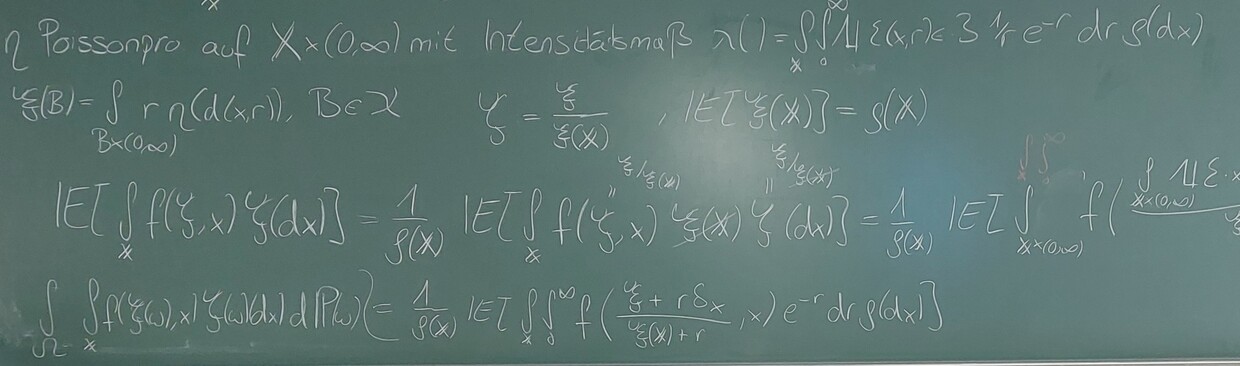 η Poissonpro auf 𝕏×(0,∞) mit Intensitätsmaß λ(·) = ∫_𝕏 ∫_0^∞ 𝟙{(x,r)∈·} 1/r e^{-r} dr ρ(dx)
ξ(B) = ∫_{B×(0,∞)} r η(d(x,r)), B∈𝒳 ζ = ξ/ξ(𝕏) , 𝔼[ξ(𝕏)] = ρ(𝕏)
ξ/ξ(𝕏) ξ/ξ(𝕏)
𝔼[∫_𝕏 f(ζ,x) ζ(dx)] = 1/ρ(𝕏) 𝔼[∫_𝕏 f(ζ,x) ξ(𝕏) ζ(dx)] = 1/ρ(𝕏) 𝔼[∫_{𝕏×(0,∞)} f( ∫_{𝕏×(0,∞)} 𝟙{·x
∫_Ω ∫_𝕏 f(ζ(ω),x) ζ(ω)(dx) dℙ(ω) = 1/ρ(𝕏) 𝔼[∫_𝕏 ∫_0^∞ f( (ξ + rδ_x)/(ξ(𝕏)+r) , x) e^{-r} dr ρ(dx)]